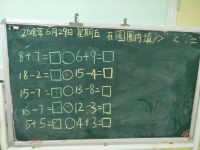 2018年6月29日 星期五 在□圈内填 > < =
8+7=□○6+9=□
18-2=□○15-4=□
15-7=□○13-8=□
16-7=□○12-3=□
5+5=□○4+3=□